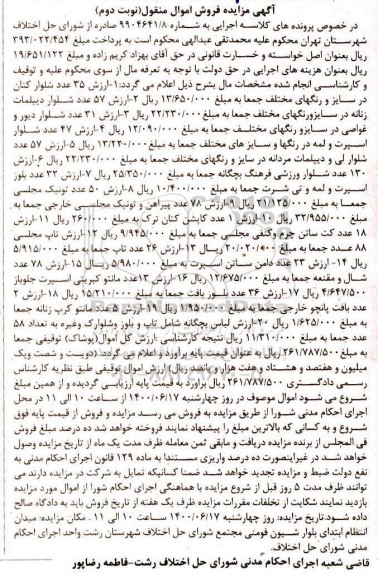 آگهی مزایده فروش اموال منقول(نوبت دوم)
در خصوص پرونده های کلاسه اجرایی به شماره ۹۹۰۴۶۴۱/۸ صادره از شورای حل اختلاف
شهرستان تهران محکوم علیه محمدتقی عبدالهی محکوم است به پرداخت مبلغ ۳۹۳/۰۲۲/۴۵۴
ریال بعنوان اصل خواسته و خسارت قانونی در حق آقای بهزاد کریم زاده و مبلغ ۱۹/۶۵۱/۱۲۲
ریال بعنوان هزینه های اجرایی در حق دولت با توجه به تعرفه مال از سوی محکوم علیه و توقیف
و کارشناسی انجام شده مشخصات مال بشرح ذیل اعلام می گردد:۱-ارزش ۳۵ عدد شلوار کتان
در سایز و رنگهای مختلف جمعا به مبلغ ۱۳/۶۵۰/۰۰۰ ریال ۲-ارزش ۵۷ عدد شلوار دیپلمات
زنانه در سایزورنگهای مختلف جمعا به مبلغ ۲۲/۲۳۰/۰۰۰ ریال ۳-ارزش ۳۱ عدد شلوار دیور و
غواصی در سایزو رنگهای مختلف جمعا به مبلغ ۱۲/۰۹۰/۰۰۰ ریال ۴-ارزش ۴۷ عدد شلوار
اسپرت و لمه در رنگها و سایز های مختلف جمعا به مبلغ ۱۳/۲۲۰/۰۰۰ ریال ۵-ارزش ۵۷ عدد
شلوار لی و دیپلمات مردانه در سایز و رنگهای مختلف جمعا به مبلغ ۲۲/۲۳۰/۰۰۰ ریال ۶-ارزش
۱۳۰ عدد شلوار ورزشی فرهنگ بچگانه جمعا به مبلغ ۲۵/۳۵۰/۰۰۰ ریال ۷-ارزش ۳۲ عدد بلوز
اسپرت و لمه و تی شرت جمعا به مبلغ ۱۰/۴۰۰/۰۰۰ ریال ۸-ارزش ۵۰ عدد تونیک مجلسی
جمعا به مبلغ ۲۱/۱۲۵/۰۰۰ ریال ۹-ارزش ۷۸ عدد پیراهن و تونیک مجلسی خارجی جمعا به
مبلغ ۳۲/۹۵۵/۰۰۰ ریال ۱۰-ارزش ۱ عدد کاپشن کتان ترک به مبلغ ۲۶۰/۰۰۰ ریال ۱۱-ارزش
۱۸ عدد کت ساتن چرم وکتفی مجلسی جمعا به مبلغ ۹/۹۴۵/۰۰۰ ریال ۱۲-ارزش تاپ مجلسی
۸۸ عدد جمعا به مبلغ ۲۰/۰۲۰/۰۰۰ ریال ۱۳-ارزش ۲۶ عدد تاپ جمعا به مبلغ ۵/۹۱۵/۰۰۰
ریال ۱۴- ارزش ۲۳ عدد دامن ساتن اسپرت به مبلغ ۵/۹۸۰/۰۰۰ ریال ۱۵-ارزش ۷۸ عدد
شال و مقنعه جمعا به مبلغ ۱۲/۶۷۵/۰۰۰ ریال ۱۶-ارزش ۱۳عدد مانتو کبریتی اسپرت جلوباز
۴/۶۴۷/۵۰۰ ریال ۱۷-ارزش ۳۶ عدد بلوز بافت جمعا به مبلغ ۱۵/۲۱۰/۰۰۰ ریال ۱۸-ارزش ۲
عدد بافت پانچو خارجی جمعا به مبلغ ۱/۹۵۰/۰۰۰ ریال ۱۹-ارزش ۵ عدد مانتو کرپ زنانه جمعا
به مبلغ ۱/۶۲۵/۰۰۰ ریال ۲۰-ارزش لباس بچگانه شامل تاپ و بلوز وشلوارک وغیره به تعداد ۵۸
عدد به مبلغ ۱۱/۳۱۰/۰۰۰ ریال نتیجه کارشناسی ارزش کل اموال(پوشاک) توقیفی جمعا
به مبلغ ۲۶۱/۷۸۷/۵۰۰ ریال به عنوان قیمت پایه برآورد و اعلام می گردد.(دویست و شصت ویک
میلیون و هفتصد و هشتاد و هفت هزار و پانصد ریال) ارزش اموال توقیفی طبق نظریه کارشناس
رسمی دادگستری ۲۶۱/۷۸۷/۵۰۰ ریال برآورد به قیمت پایه ارزیابی گردیده و از همین مبلغ
شروع می شود اموال موصوف در روز چهارشنبه ۱۴۰۰/۰۶/۱۷ از ساعت ۱۰ الی ۱۱ در محل
اجرای احکام مدنی شورا از طریق مزایده به فروش می رسد مزایده و فروش از قیمت پایه فوق
شروع و به کسانی که بالاترین مبلغ را پیشنهاد نمایند فروخته خواهد شد ده درصد مبلغ فروش
فی المجلس از برنده مزایده دریافت و مابقی ثمن معامله ظرف مدت یک ماه از تاریخ مزایده وصول
خواهد شد در غیراینصورت ده درصد واریزی مستندا به ماده ۱۲۹ قانون اجرای احکام مدنی به
نفع دولت ضبط و مزایده تجدید خواهد شد ضمنا کسانیکه تمایل به شرکت در مزایده دارند می
توانند ظرف مدت ۵ روز قبل از شروع مزایده با هماهنگی اجرای احکام شورا از اموال مورد مزایده
بازدید نمایند شکایت از تخلفات مقررات مزایده ظرف یک هفته از تاریخ فروش باید به دادگاه صالح
داده شود.تاریخ مزایده: روز چهارشنبه ۱۴۰۰/۰۶/۱۷ ساعت ۱۰ الی ۱۱ . مکان مزایده: میدان
انتظام ابتدای بلوار شیون فومنی مجتمع شورای حل اختلاف شهرستان رشت واحد اجرای احکام
مدنی شورای حل اختلاف.
قاضی شعبه اجرای احکام مدنی شورای حل اختلاف رشت-فاطمه رضاپور